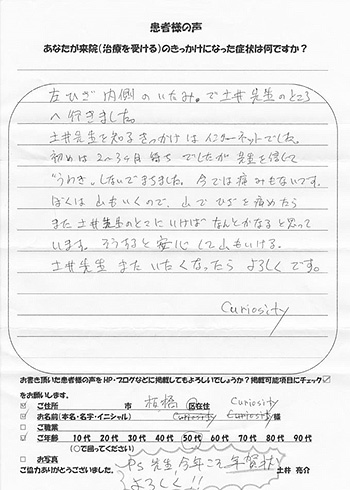 患者様の声
あなたが来院(治療を受ける)のきっかけになった症状は何ですか?
左ひざ内側のいたみ。で土井先生のところ
へ行きました。
土井先生を知るきっかけはインターネットでした。
初めは2~3ヶ月待ちでしたが先生を信じて
"うわき"しないでまちました。今では痛みもないです。
ぼくは山もいくので、山でひざを痛めたら
また土井先生のとこにいけばなんとかなると思って
います。そうすると安心して山もいける。
土井先生またいたくなったらよろしくです。
Curiosity
お書き頂いた患者様の声をHP・ブログなどに掲載してもよろしいでしょうか?掲載可能項目にチェック☑
をお願いします。
☑ ご住所 市 板橋 区在住 Curiosity
☑ お名前(本名・名字・イニシャル) Curiosity Curiosity 様
□ ご職業
☑ ご年齢 10代 20代 30代 40代 50代 60代 70代 80代 90代
(○で囲ってください)
□ お写真
ご協力ありがとうございました。 土井 亮介
PS 先生、今年こそ年賀状
よろしく!!